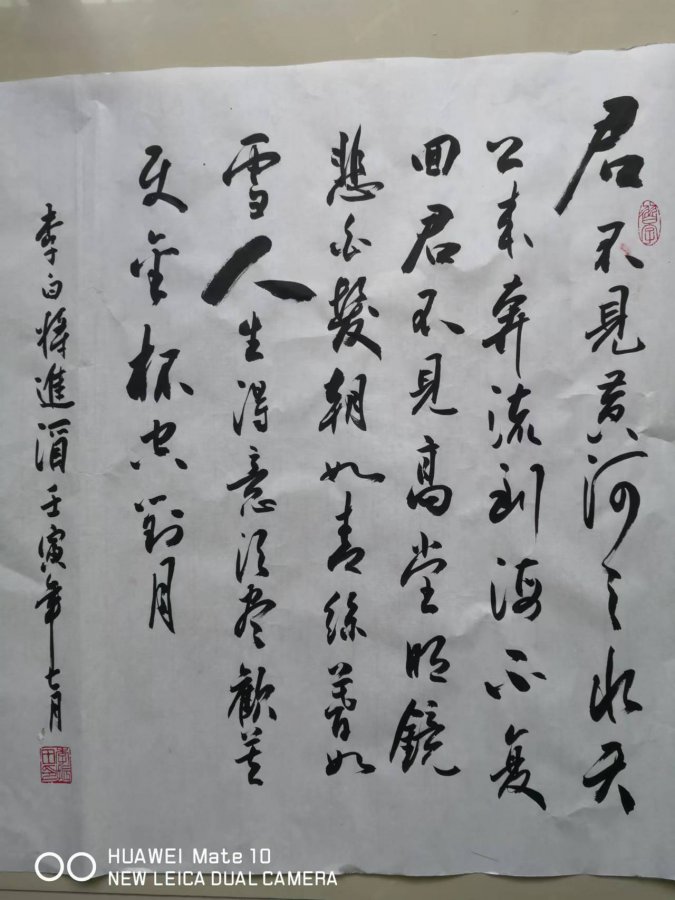 君不見黄河之水天
上来奔流到海不复
回君不見高堂明鏡
悲白髮朝如青絲暮如
雪人生得意須尽歡莫
使金杯空對月
李白将進酒壬寅年七月
HUAWEI Mate 10
NEW LEICA DUAL CAMERA